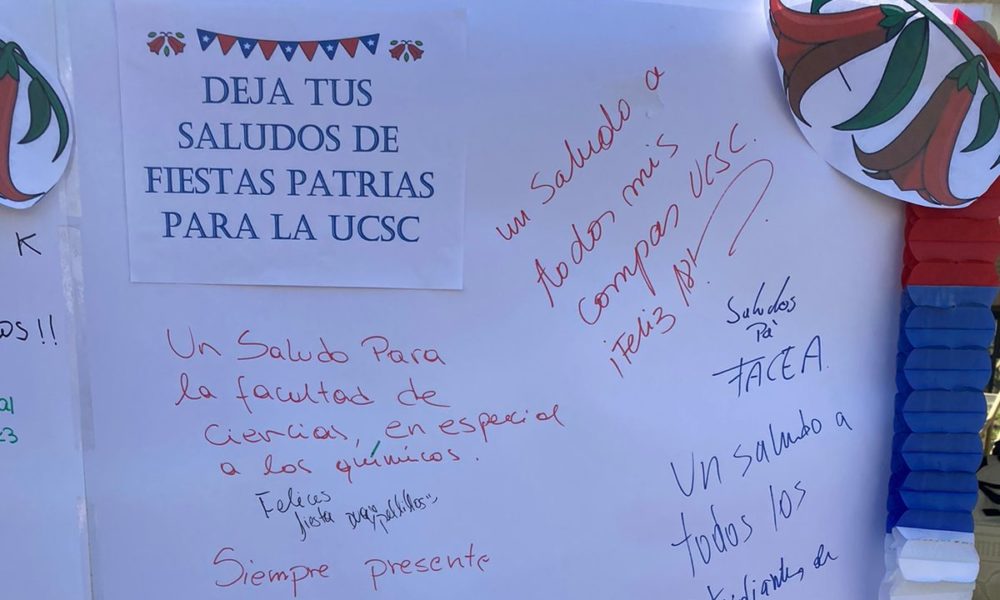 DEJA TUS
SALUDOS DE
FIESTAS PATRIAS
PARA LA UCSC
un Saludo a
todos mis
compas UCSC.
¡Feliz 18!
Saludos
Pa
FACEA.
Un Saludo Para
la facultad de
ciencias, en especial
a los químicos.
Felices
fiesta
Siempre presente
Un saludo a
todos los
K
os!!
al
23